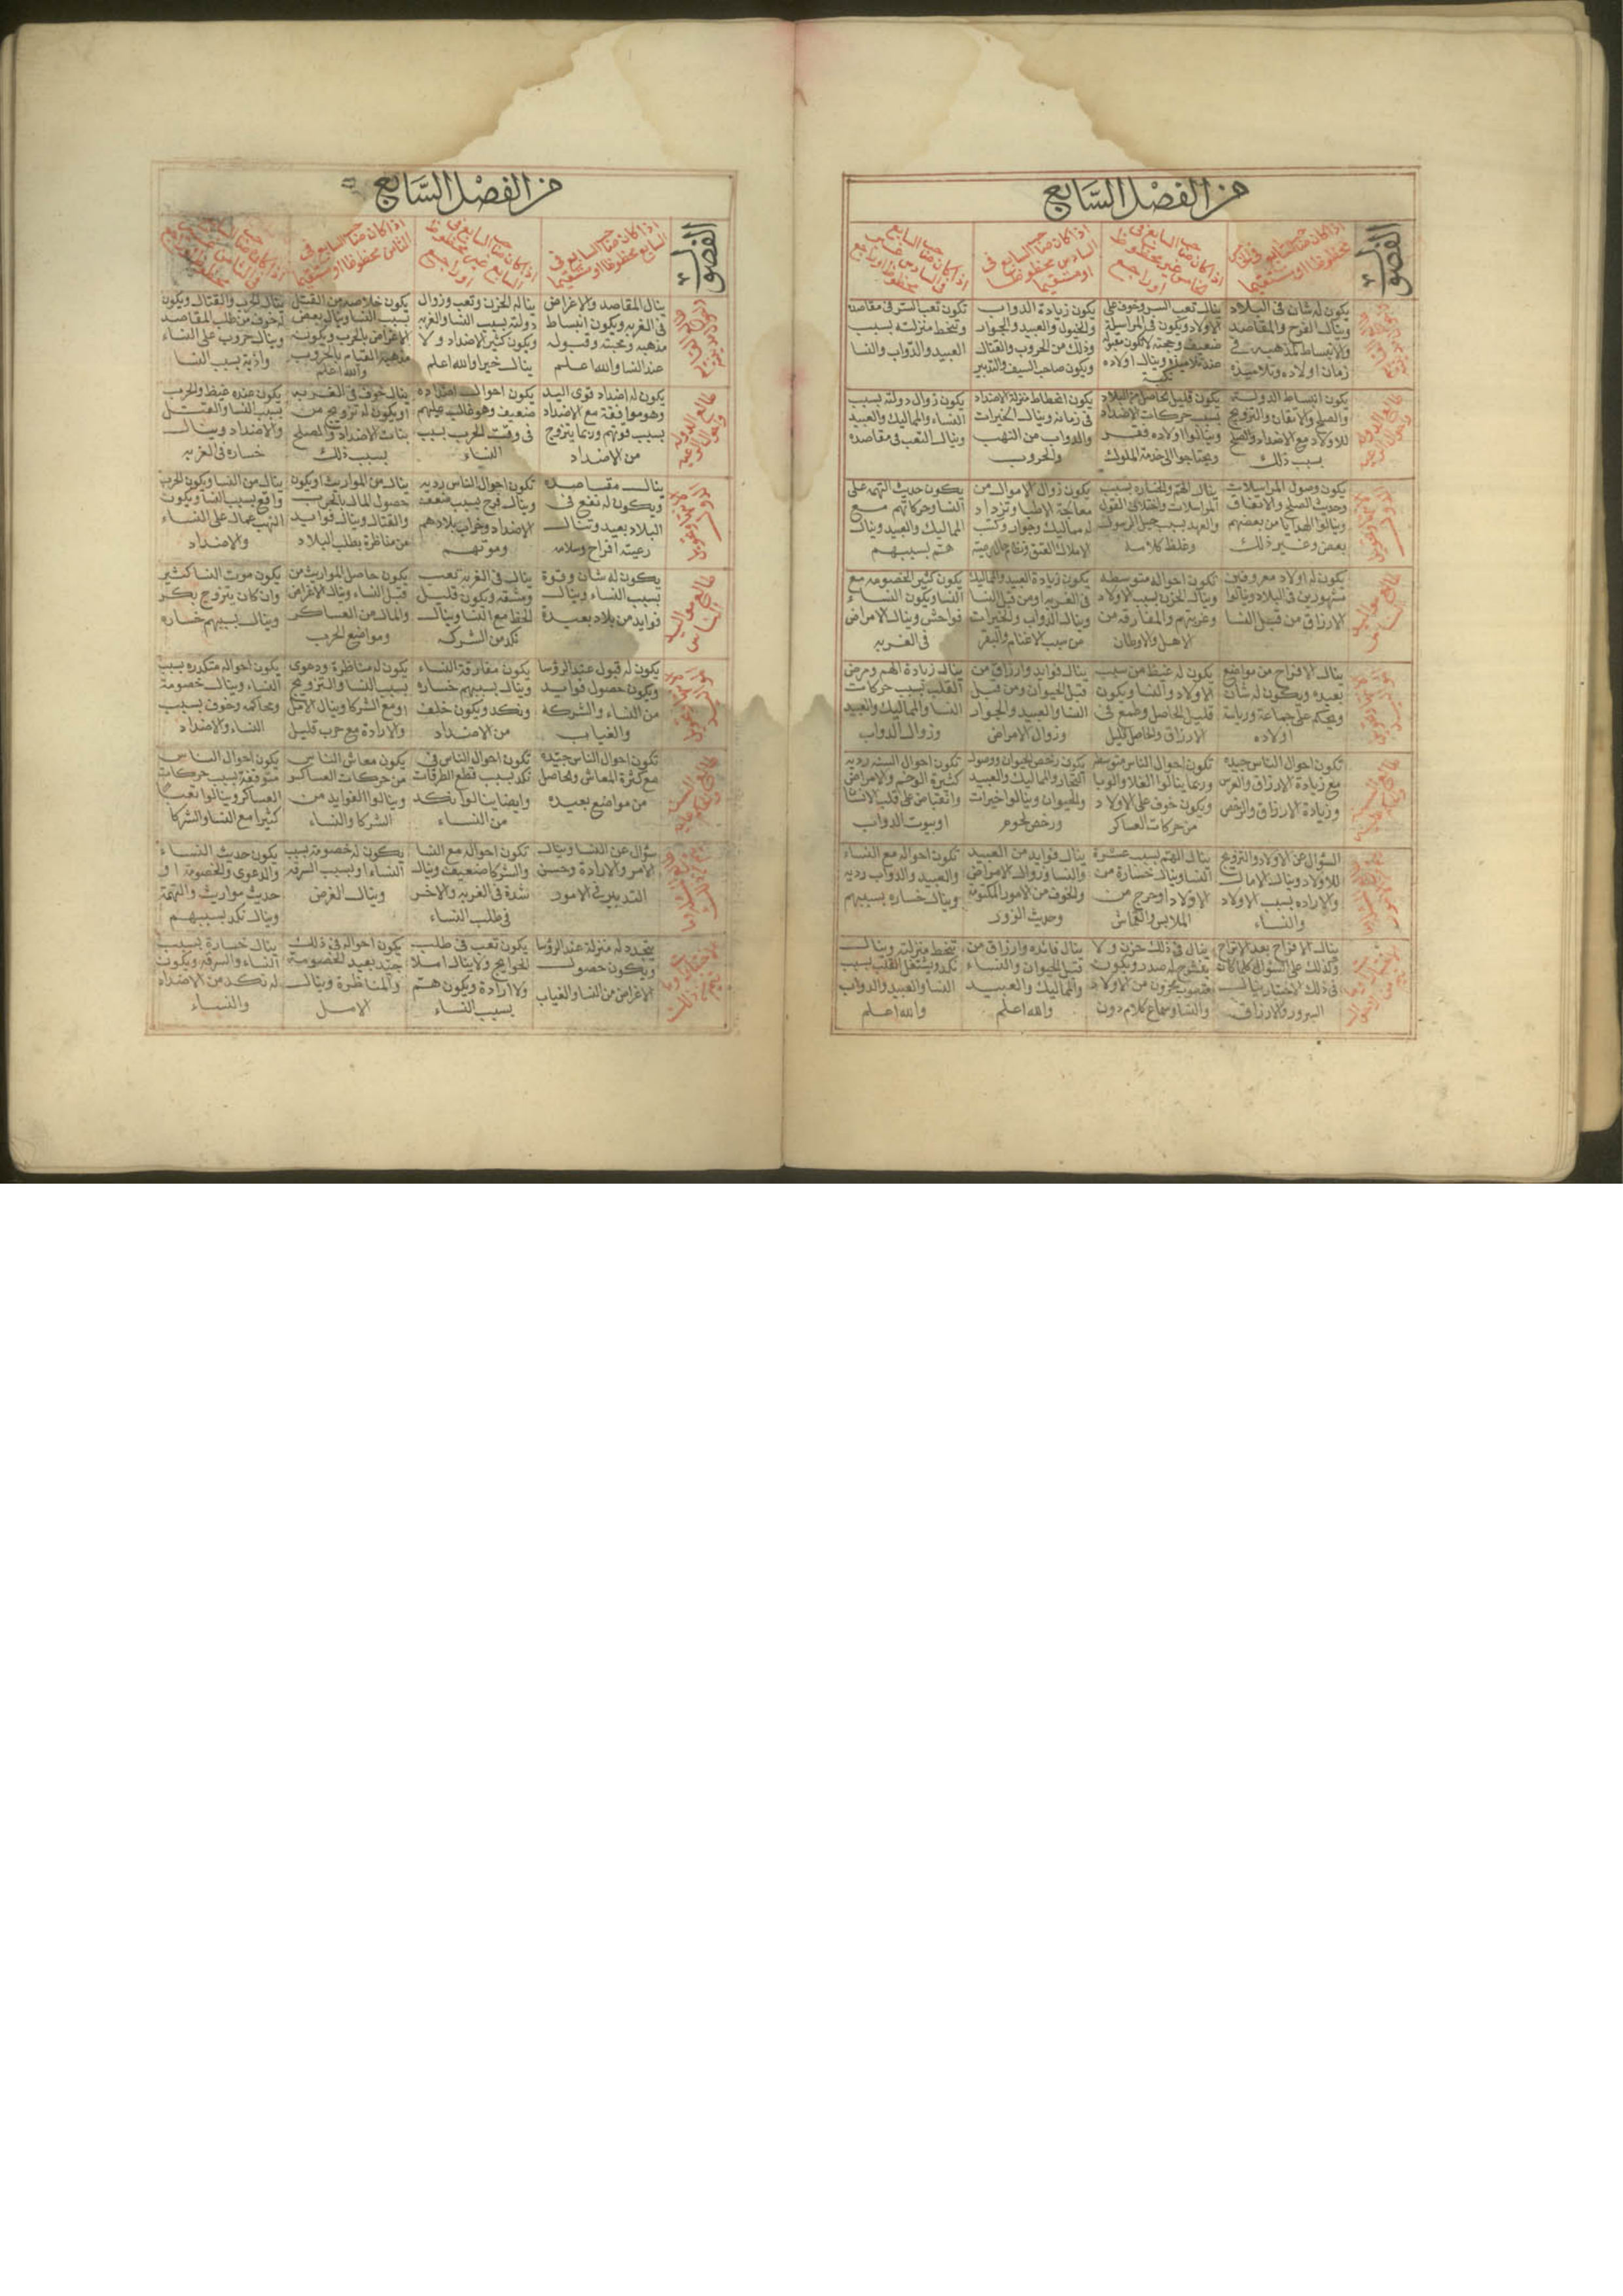 من الفصل السابع
الفصول
اذا كان صاحب السابع في
محظوظا او مستقيما
اذا كان صاحب السابع في
غير محظوظ
او راجع
اذا كان صاحب السابع في
السادس محظوظا
او مستقيما
اذا كان صاحب السابع
في السادس غير
محظوظ او راجع
يكون له شان في البلاد
وينال الفرح والمقاصد
والانبساط لمذهبه في
زمان اولاده وتلاميذه
ينال تعب السر وخوف على
الاولاد ويكون في المراسيلة
ضعيف وحجته لا تكون مقبوله
عند تلاميذه وينال اولاده
نكبة
يكون زيادة الدواب
والخيول والعبيد والجوار
وذلك من الحروب والقتال
ويكون صاحب السيف والتدبير
تكون تعب السر في مقاصده
وتنحط منزلته بسبب
العبيد والدواب والنسا
يكون انبساط الدولة
والصلح والاتفاق والتزويج
للاولاد مع الاضداد والصلح
بسبب ذلك
يكون قليل الحاصل من البلاد
بسبب حركات الاضداد
وينالوا اولاده فقر
ويحتاجوا الى خدمة الملوك
يكون انحطاط منزلة الاضداد
في زمانه وينال الخيرات
والدواب من النهب
والحروب
يكون زوال دولته بسبب
النساء والمماليك والعبيد
وينال التعب في مقاصده
يكون وصول المراسلات
وحديث الصلح والاتفاق
وينالوا الهدايا من بعضهم
بعض وغير ذلك
ينال الهم والخساره بسبب
المراسلات واختلاف القول
والعهد بسبب حيل الرسول
وغلظ كلامه
يكون زوال الاموال من
معالجة الاطبا وتزداد
له مماليك وجوار وكتب
الاملاك العتق ونظام حال رعيته
يكون حديث التهم على
النسا وحركاتهم مع
المماليك والعبيد وينال
هم بسببهم
يكون له اولاد معروفين
مشهورين في البلاد وينال
الارزاق من قبل النسا
تكون احواله متوسطه
وينال الحزن بسبب الاولاد
وغربتهم والمفارقه من
الاهل والاوطان
يكون زيادة العبيد والمماليك
في الغربه او من قبل النسا
وينال الدواب والخيرات
من سبب الاغنام والبقر
يكون كثير الخصومه مع
النسا ويكون النساء
فواحش وينال الامراض
في الغربه
ينال الافراح من مواضع
بعيده ويكون له شان
ويحكم على جماعة ورياسة
اولاده
يكون له غيظ من سبب
الاولاد والنسا ويكون
قليل الحاصل وطمع في
الارزاق والحاصل قليل
ينال فوايد وارزاق من
قبل الحيوان ومن قبل
النسا والعبيد والجوار
وزوال الامراض
ينال زيادة الهم ومرض
القلب بسبب حركات
النسا والمماليك والعبيد
وزوال الدواب
تكون احوال الناس جيده
مع زيادة الارزاق والغرس
وزيادة الارزاق والرخص
تكون احوال الناس متوسطه
وربما ينالوا الغلا والوبا
ويكون خوف على الاولاد
من حركات العساكر
يكون رخص الحيوان ووصول
التجار والمماليك والعبيد
والحيوان وينالوا خيرات
ورخص لحوم
تكون احوال السنه رديه
كثيرة الوخم والامراض
وانقباض على قلب الاناث
او بيوت الدواب
السؤال عن الاولاد والتزويج
للاولاد وينال الامال
والاراده بسبب الاولاد
والنساء
ينال الهم بسبب عشرة
النسا وينال خسارة من
الاولاد او حرج من
الملابس والقماش
ينال فوايد من العبيد
والنسا وزوال الامراض
والخوف من الامور المكتومة
وحديث الزور
تكون احواله مع النساء
والعبيد والدواب رديه
وينال خساره بسببهم
ينال الافراح بعد الاتراح
وكذلك على السؤال كلما كان
في ذلك الاختيار ينال
السرور والارزاق
ينال في ذلك حزن ولا
ينشرح له صدر ويكون
مغصوب محزون من الاولاد
والنسا وسماع كلام دون
ينال فائده وارزاق من
قبل الحيوان والنساء
والمماليك والعبيد
والله اعلم
تنحط منزلته وينال
نكد ويشتغل القلب بسبب
النسا والعبيد والدواب
والله اعلم
من الفصل السابع
الفصول
اذا كان صاحب السابع في
السابع محظوظا او مستقيما
اذا كان صاحب السابع في
السابع غير محظوظ
او راجع
اذا كان صاحب السابع في
الثامن محظوظا او مستقيما
ينال المقاصد والاغراض
في الغربه ويكون انبساط
مذهبه ومحبته وقبوله
عند النسا والله اعلم
يناله الحزن وتعب وزوال
دولته بسبب النسا والغربه
ويكون كثير الاضداد ولا
ينال خير والله اعلم
يكون خلاصه من القتل
بسبب النسا وينال بعض
الاغراض بالحرب ويكون
مذهبه القيام بالحروب
والله اعلم
ينال الحرب والقتال ويكون
له خوف من طلب المقاصد
وينال حروب على النساء
واذية بسبب النسا
يكون له اضداد قوى اليد
وهو موافقة مع الاضداد
بسبب قوتهم وربما يتزوج
من الاضداد
يكون احوال اضداده
ضعيف وهو غالب عليهم
في وقت الحرب بسبب
النساء
ينال خوف في الغربه
او يكون له تزويج من
بنات الاضداد والصلح
بسبب ذلك
يكون عنده غيظ والحرب
بسبب النسا والقتل
والاضداد وينال
خساره في الغربه
ينال مقاصده
ويكون له نفع في
البلاد بعيد وتنال
رعيته افراح وسلامه
تكون احوال الناس رديه
وينال فرح بسبب ضعف
الاضداد وخراب بلادهم
وموتهم
ينال من المواريث او يكون
حصول المال بالحرب
والقتال وينال فوايد
من مناظرة بطلب البلاد
ينال من النسا ويكون الحرب
واقع بسبب النسا ويكون
النهب عمال على النساء
والاضداد
يكون له شان وقوة
بسبب النساء وينال
فوايد من بلاد بعيدة
ينال في الغربه تعب
ومشقه ويكون قليل
الحظ مع النسا وينال
نكد من الشركه
يكون حاصل المواريث من
قبل النساء وينال الاغراض
والمال من العساكر
ومواضع الحرب
يكون موت النسا كثير
وان كان يتزوج بكر
وينال بسببهم خساره
يكون له قبول عند الرؤسا
ويكون حصول فوايد
من النساء والشركة
والغياب
يكون مفارقة النساء
وينال بسببهم خساره
ونكد ويكون خلف
من الاضداد
يكون له مناظرة ودعوى
بسبب النسا والتزويج
او مع الشركا وينال الامل
والارادة مع حرب قليل
يكون احواله متكدره بسبب
النساء وينال خصومة
ومحاكمه وخوف بسبب
النساء والاضداد
تكون احوال الناس جيده
مع كثرة المعاش والحاصل
من مواضع بعيده
تكون احوال الناس في
نكد بسبب قطع الطرقات
وايضا ينالوا نكد
من النساء
يكون معاش الناس
من حركات العساكر
وينالوا الفوايد من
الشركا والنساء
يكون احوال الناس
متوقفة بسبب حركات
العساكر وينالوا تعبا
كثيرا مع النسا والشركا
سؤال عن النسا وينال
الامر والارادة وحسن
التدبير في الامور
تكون احواله مع النسا
والشركا ضعيف وينال
شدة في الغربه والاخر
في طلب النساء
يكون له خصومه بسبب
النساء او بسبب السرقه
وينال الغرض
يكون حديث النساء
والدعوى والخصومة او
حديث مواريث والتهمة
وينال نكد بسببهم
يتجدد له منزلة عند الرؤسا
ويكون حصول
الاغراض من النسا والغياب
يكون تعب في طلب
الحوايج ولا ينال املا
ولا ارادة ويكون هم
بسبب النساء
يكون احواله في ذلك
جيد بعيد الخصومة
والمناظرة وينال
الامل
ينال خسارة بسبب
النساء والسرقه ويكون
له نكد من الاضداد
والنساء